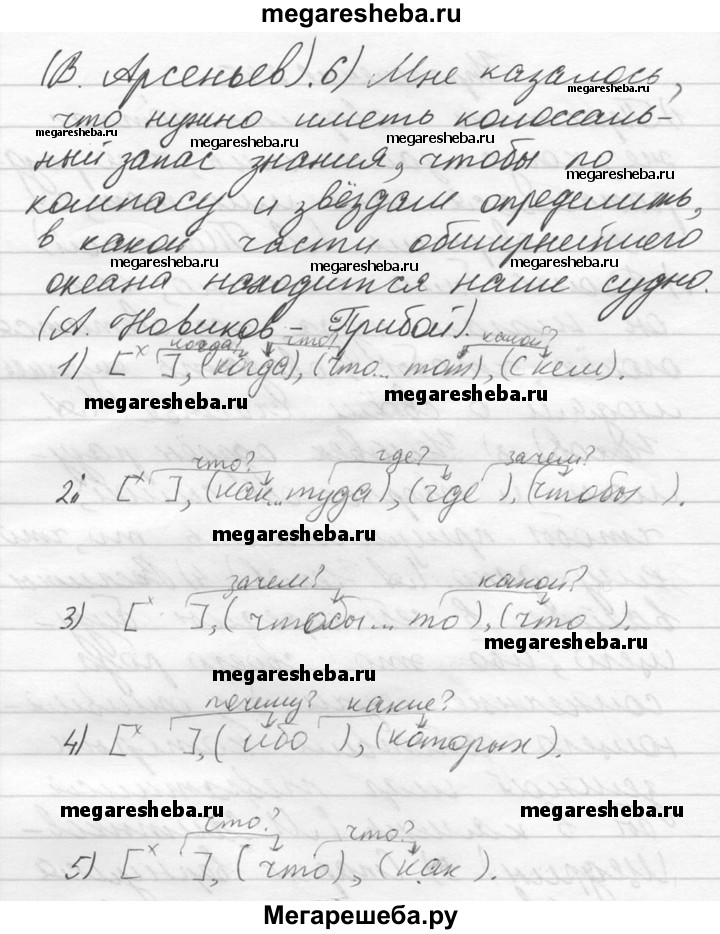 megaresheba.ru
(В. Арсеньев). 6) Мне казалось,
megaresheba.ru
что нужно иметь колоссаль-
megaresheba.ru megaresheba.ru
ный запас знания, чтобы по
megaresheba.ru
компасу и звёздам определить,
в какой части обширнейшего
megaresheba.ru megaresheba.ru
океана находится наше судно.
(А. Новиков - Прибой).
когда? что? какой?
1) [ˣ ], (когда), (что... тот), (с кем).
megaresheba.ru megaresheba.ru
что? где? зачем?
2. [ˣ ], (как... туда), (где ), (чтобы ).
megaresheba.ru
зачем? какой?
3) [ˣ ], ( чтобы... то), (что ).
megaresheba.ru
megaresheba.ru
почему? какие?
4) [ˣ ], ( ибо ), (которых ).
megaresheba.ru megaresheba.ru
что? что?
5) [ˣ ], ( что), (как ).
Мегарешеба.ру